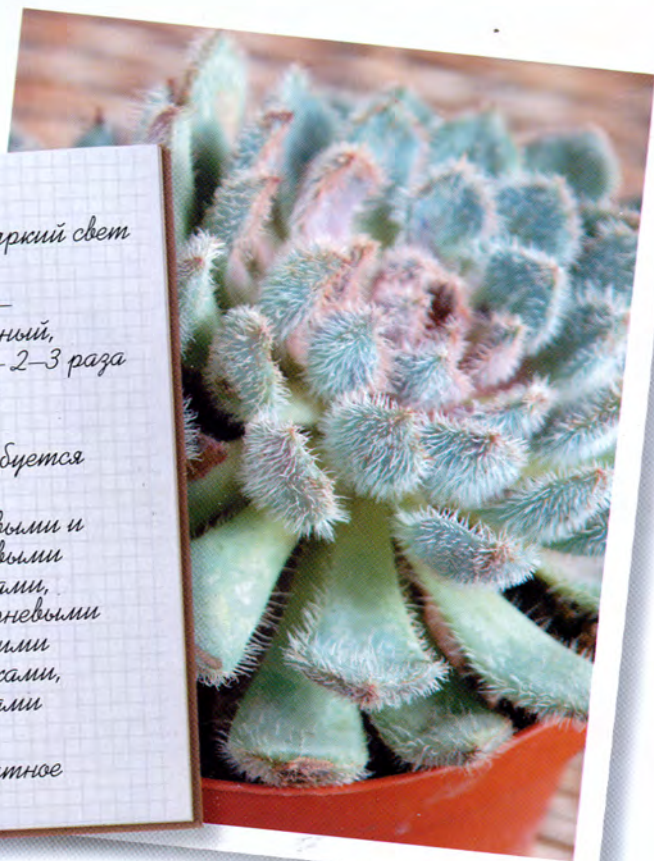 яркий свет
–
ный,
– 2–3 раза
буется
выми и
выми
ами,
рневыми
ими
ками,
ами
тное